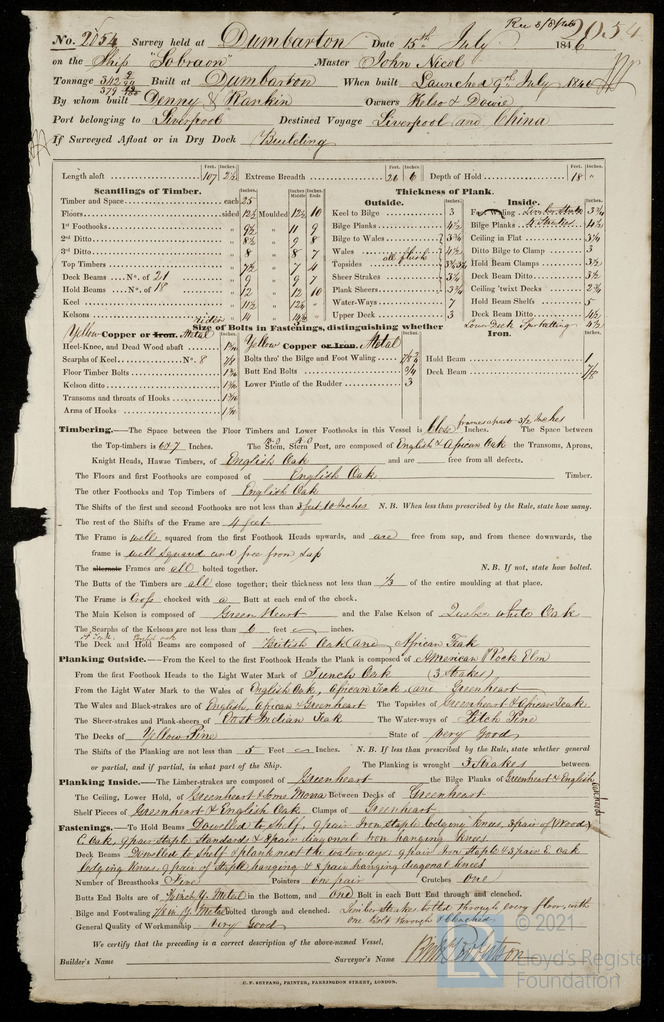 Rec 8/8/46 2054
No. 2054 Survey held at Dumbarton Date 15th July 1846
on the Ship "Sobraon" Master John Nicol
Tonnage 342 Built at Dumbarton When built Launched 9th July 1846
379
By whom built Denny & Rankin Owners Kelso & Dowie
Port belonging to Liverpool Destined Voyage Liverpool and China
If Surveyed Afloat or in Dry Dock Building
Feet. Inches. Feet. Inches. Feet. Inches.
Length aloft 107 2½ Extreme Breadth 26 6 Depth of Hold 18 "
Scantlings of Timber. Thickness of Plank.
Inches. Inches Middle Inches Ends Outside. Inches. Inside. Inches.
Timber and Space each 25
Floors sided 12½ Moulded 12½ 10 Keel to Bilge 3 Limber Strake 3¾
1st Foothooks 9½ " 11 9 Bilge Planks 4½ Bilge Planks 4 Strakes 4½
2nd Ditto 8½ " 9 8 Bilge to Wales 3¾ Ceiling in Flat 3¼
3rd Ditto 8 " 8 7 Wales 4½ Ditto Bilge to Clamp 3
Top Timbers 7½ " 7 4 Topsides all flush Hold Beam Clamps 3½
Deck Beams No. of 21 9 " 9 7 Sheer Strakes Deck Beam Ditto 3½
Hold Beams No. of 18 12 " 12 10 Plank Sheers 3¾ Ceiling 'twixt Decks 2¾
Keel 11½ " 12½ Water-Ways 7 Hold Beam Shelfs 5
Kelsons 14 " Upper Deck 3 Deck Beam Ditto 4½
Rider Lower Deck Spirketting 4½
Size of Bolts in Fastenings, distinguishing whether
Yellow Copper or Iron. Metal Inches. Yellow Copper or Iron. Metal Inches. Iron. Inches.
Heel-Knee, and Dead Wood abaft Bolts thro' the Bilge and Foot Waling 7/8 ¾ Hold Beam 1
Scarphs of Keel No. 8 Butt End Bolts Deck Beam 7/8
Floor Timber Bolts Lower Pintle of the Rudder 3
Kelson ditto
Transoms and throats of Hooks
Arms of Hooks
Timbering.—The Space between the Floor Timbers and Lower Foothooks in this Vessel is Close frames apart 3½ Inches Inches. The Space between
the Top-timbers is 6 & 7 Inches. The Stem, Stern Post, are composed of English & African Oak the Transoms, Aprons,
Knight Heads, Hawse Timbers, of English Oak and are free from all defects.
The Floors and first Foothooks are composed of English Oak Timber.
The other Foothooks and Top Timbers of English Oak
The Shifts of the first and second Foothooks are not less than 3 feet 10 Inches N. B. When less than prescribed by the Rule, state how many.
The rest of the Shifts of the Frame are 4 feet
The Frame is well squared from the first Foothook Heads upwards, and are free from sap, and from thence downwards, the
frame is well squared and free from sap
The alternate Frames are all bolted together. N. B. If not, state how bolted.
The Butts of the Timbers are all close together; their thickness not less than ⅓ of the entire moulding at that place.
The Frame is Cross chocked with a Butt at each end of the chock.
The Main Kelson is composed of Green Heart and the False Kelson of Quebec white Oak
The Scarphs of the Kelsons are not less than 6 feet inches.
The Deck and Hold Beams are composed of British Oak and African Teak
Planking Outside.—From the Keel to the first Foothook Heads the Plank is composed of American Rock Elm
From the first Foothook Heads to the Light Water Mark of French Oak (3 Strakes)
From the Light Water Mark to the Wales of English Oak, African Teak and Greenheart
The Wales and Black-strakes are of English, African & Greenheart The Topsides of Greenheart & African Teak
The Sheer-strakes and Plank-sheers of East Indian Teak The Water-ways of Pitch Pine
The Decks of Yellow Pine State of Very Good
The Shifts of the Planking are not less than 5 Feet Inches. N. B. If less than prescribed by the Rule, state whether general
or partial, and if partial, in what part of the Ship. The Planking is wrought 3 Strakes between
Planking Inside.—The Limber-strakes are composed of Greenheart the Bilge Planks of Greenheart & English
The Ceiling, Lower Hold, of Greenheart & some Mora Between Decks of Greenheart
Shelf Pieces of Greenheart & English Oak Clamps of Greenheart
Fastenings.—To Hold Beams Dowelled to Shelf, 9 pair Iron Staple lodging Knees, 3 pair of Wood,
E. Oak, 9 pair Staple Standards & 8 pair diagonal Iron hanging Knees
Deck Beams Dowelled to Shelf & plank next the waterways, 9 pair Iron Staple & 3 pair E. Oak
lodging Knees, 9 pair of Staple hanging & 8 pair hanging diagonal Knees
Number of Breasthooks Five Pointers one pair Crutches one
Butts End Bolts are of Y. Metal in the Bottom, and one Bolt in each Butt End through and clenched.
Bilge and Footwaling Y. Metal bolted through and clenched. Limber Strakes bolted through every floor, with
one Bolt through & clenched
General Quality of Workmanship Very Good
We certify that the preceding is a correct description of the above-named Vessel.
Builder's Name Surveyor's Name Robertson
C. F. SEYFANG, PRINTER, FARRINGDON STREET, LONDON.
© 2021
Lloyd's Register
Foundation